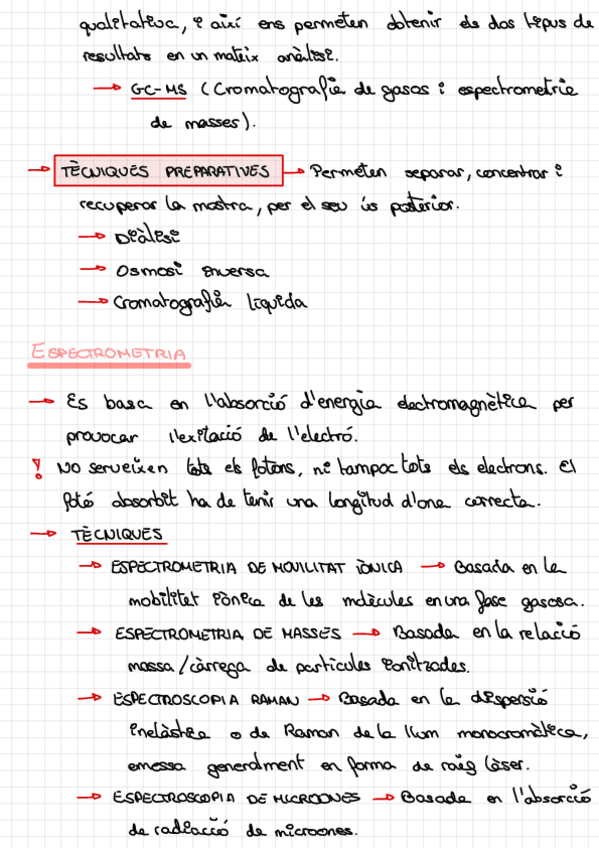 qualitativa, i així ens permeten obtenir els dos tipus de
resultats en un mateix anàlisi.
→ GC-MS (Cromatografia de gasos i espectrometria
de masses).
→ TÈCNIQUES PREPARATIVES → Permeten separar, concentrar i
recuperar la mostra, per el seu ús posterior.
→ Diàlisi
→ Osmosi inversa
→ Cromatografia líquida
ESPECTROMETRIA
→ Es basa en l'absorció d'energia electromagnètica per
provocar l'exitació de l'electró.
! No serveixen tots els fotons, ni tampoc tots els electrons. El
fotó absorbit ha de tenir una longitud d'ona correcta.
→ TÈCNIQUES
→ ESPECTROMETRIA DE MOVILITAT IÒNICA → Basada en la
mobilitat iònica de les molècules en una fase gasosa.
→ ESPECTROMETRIA DE MASSES → Basada en la relació
massa/càrrega de partícules ionitzades.
→ ESPECTROSCOPIA RAMAN → Basada en la dispersió
inelàstica o de Raman de la llum monocromàtica,
emessa generalment en forma de raig làser.
→ ESPECTROSCOPIA DE MICROONES → Basada en l'absorció
de radiació de microones.